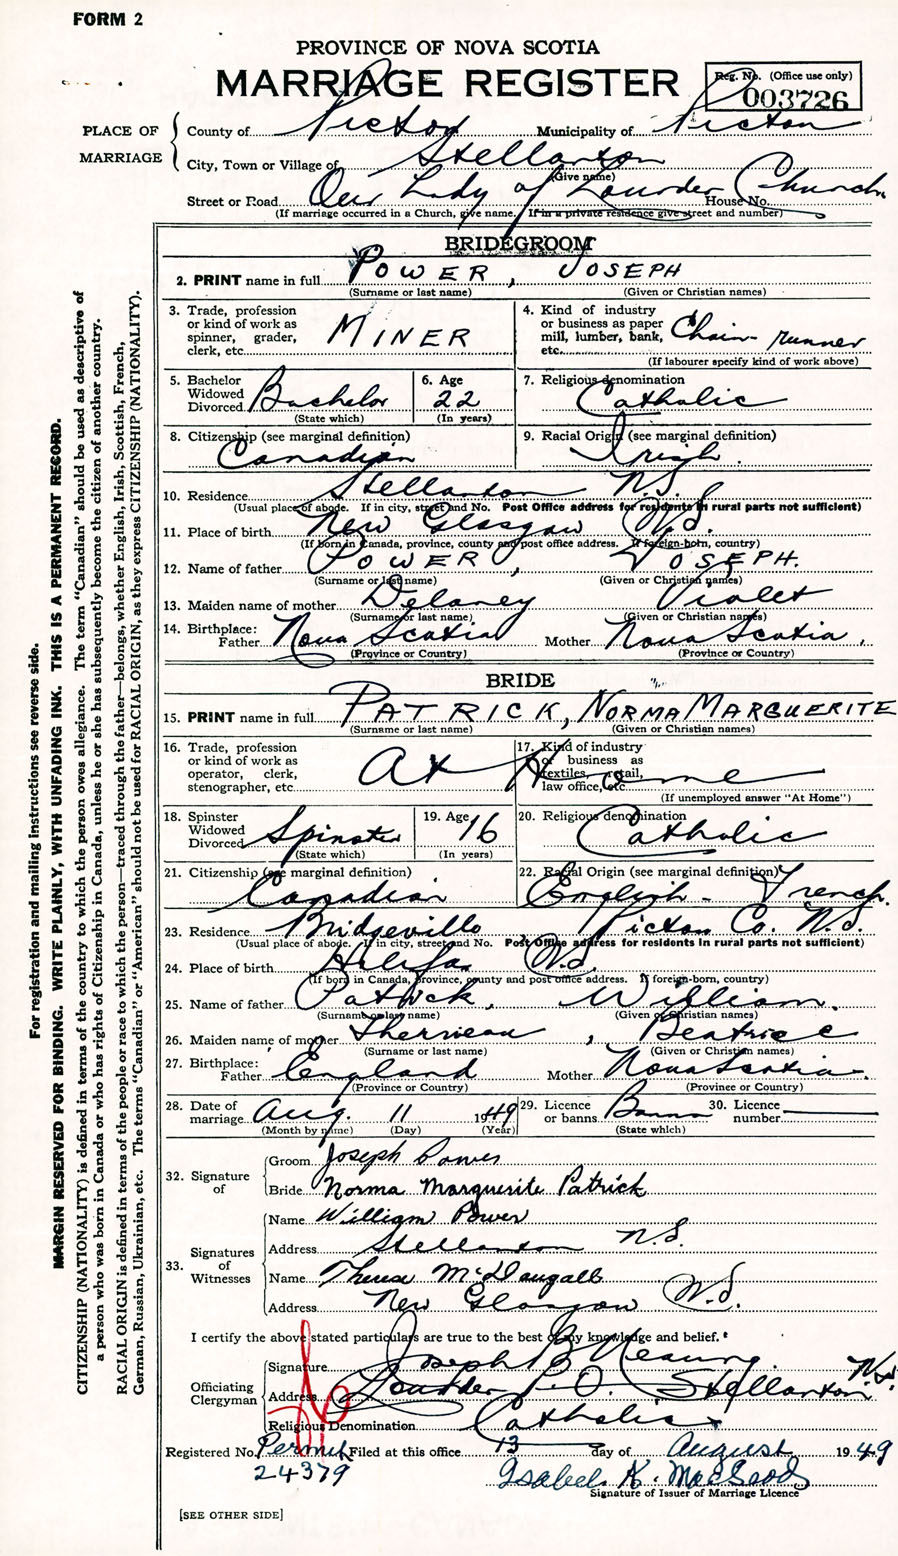 FORM 2
PROVINCE OF NOVA SCOTIA
MARRIAGE REGISTER
Reg. No. (Office use only)
003726
PLACE OF MARRIAGE
County of Pictou Municipality of Pictou
City, Town or Village of Stellarton
(Give name)
Street or Road Our Lady of Lourdes Church House No.
(If marriage occurred in a Church, give name. If in a private residence give street and number)
BRIDEGROOM
2. PRINT name in full POWER, JOSEPH
(Surname or last name) (Given or Christian names)
3. Trade, profession or kind of work as spinner, grader, clerk, etc. MINER
4. Kind of industry or business as paper mill, lumber, bank, etc. Chain runner
(If labourer specify kind of work above)
5. Bachelor Widowed Divorced Bachelor
(State which)
6. Age 22
(In years)
7. Religious denomination
Catholic
8. Citizenship (see marginal definition)
Canadian
9. Racial Origin (see marginal definition)
Irish
10. Residence Stellarton N.S.
(Usual place of abode. If in city, street and No. Post Office address for residents in rural parts not sufficient)
11. Place of birth New Glasgow N.S.
(If born in Canada, province, county and post office address. If foreign-born, country)
12. Name of father POWER, JOSEPH.
(Surname or last name) (Given or Christian names)
13. Maiden name of mother Delaney Violet
(Surname or last name) (Given or Christian names)
14. Birthplace: Father Nova Scotia Mother Nova Scotia.
(Province or Country) (Province or Country)
BRIDE
15. PRINT name in full PATRICK, NORMA MARGUERITE
(Surname or last name) (Given or Christian names)
16. Trade, profession or kind of work as operator, clerk, stenographer, etc. At
17. Kind of industry or business as textiles, retail, law office, etc. Home
(If unemployed answer "At Home")
18. Spinster Widowed Divorced Spinster
(State which)
19. Age 16
(In years)
20. Religious denomination
Catholic
21. Citizenship (see marginal definition)
Canadian
22. Racial Origin (see marginal definition)
English - French.
23. Residence Bridgeville Pictou Co. N.S.
(Usual place of abode. If in city, street and No. Post Office address for residents in rural parts not sufficient)
24. Place of birth Halifax N.S.
(If born in Canada, province, county and post office address. If foreign-born, country)
25. Name of father Patrick, William.
(Surname or last name) (Given or Christian names)
26. Maiden name of mother Therrieau, Beatrice
(Surname or last name) (Given or Christian names)
27. Birthplace: Father England Mother Nova Scotia.
(Province or Country) (Province or Country)
28. Date of marriage Aug. 11 1949
(Month by name) (Day) (Year)
29. Licence or banns Banns
(State which)
30. Licence number
32. Signature of
Groom Joseph Power
Bride Norma Marguerite Patrick
33. Signatures of Witnesses
Name William Power
Address Stellarton N.S.
Name Therese McDougall
Address New Glasgow N.S.
I certify the above stated particulars are true to the best of my knowledge and belief.
Officiating Clergyman
Signature Joseph B
Address Lourdes P.O. Stellarton N.S.
Religious Denomination Catholic
Registered No. Permit 24379 Filed at this office 13 day of August 1949
Isabel K. MacLeod
Signature of Issuer of Marriage Licence
[SEE OTHER SIDE]
For registration and mailing instructions see reverse side.
MARGIN RESERVED FOR BINDING. WRITE PLAINLY, WITH UNFADING INK. THIS IS A PERMANENT RECORD.
CITIZENSHIP (NATIONALITY) is defined in terms of the country to which the person owes allegiance. The term "Canadian" should be used as descriptive of
a person who was born in Canada or who has rights of Citizenship in Canada, unless he or she has subsequently become the citizen of another country.
RACIAL ORIGIN is defined in terms of the people or race to which the person—traced through the father—belongs, whether English, Irish, Scottish, French,
German, Russian, Ukrainian, etc. The terms "Canadian" or "American" should not be used for RACIAL ORIGIN, as they express CITIZENSHIP (NATIONALITY).